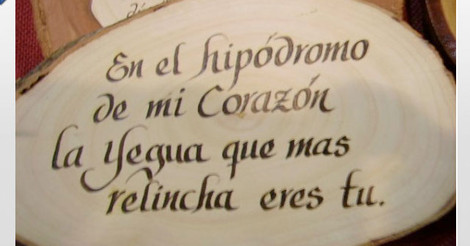 En el hipódromo
de mi Corazón
la Yegua que mas
relincha eres tu.